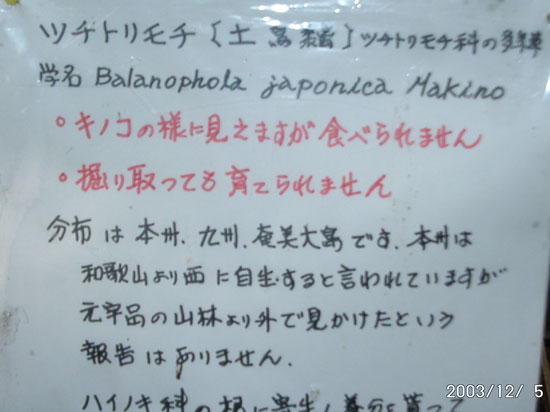 ツチトリモチ〔土鳥黐〕ツチトリモチ科の多年草
学名 Balanophola japonica Makino
・キノコの様に見えますが食べられません
・掘り取っても育てられません
分布は本州、九州、奄美大島です。本州は
和歌山より西に自生すると言われていますが
元宇品の山林より外で見かけたという
報告はありません.
ハイノキ科の根に寄生し養分を貰って
2003/12/ 5